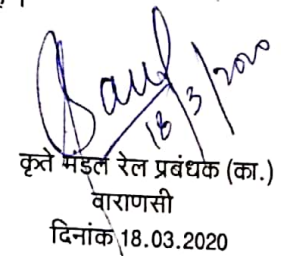 18/3/2020
कृते मंडल रेल प्रबंधक (का.)
वाराणसी
दिनांक 18.03.2020